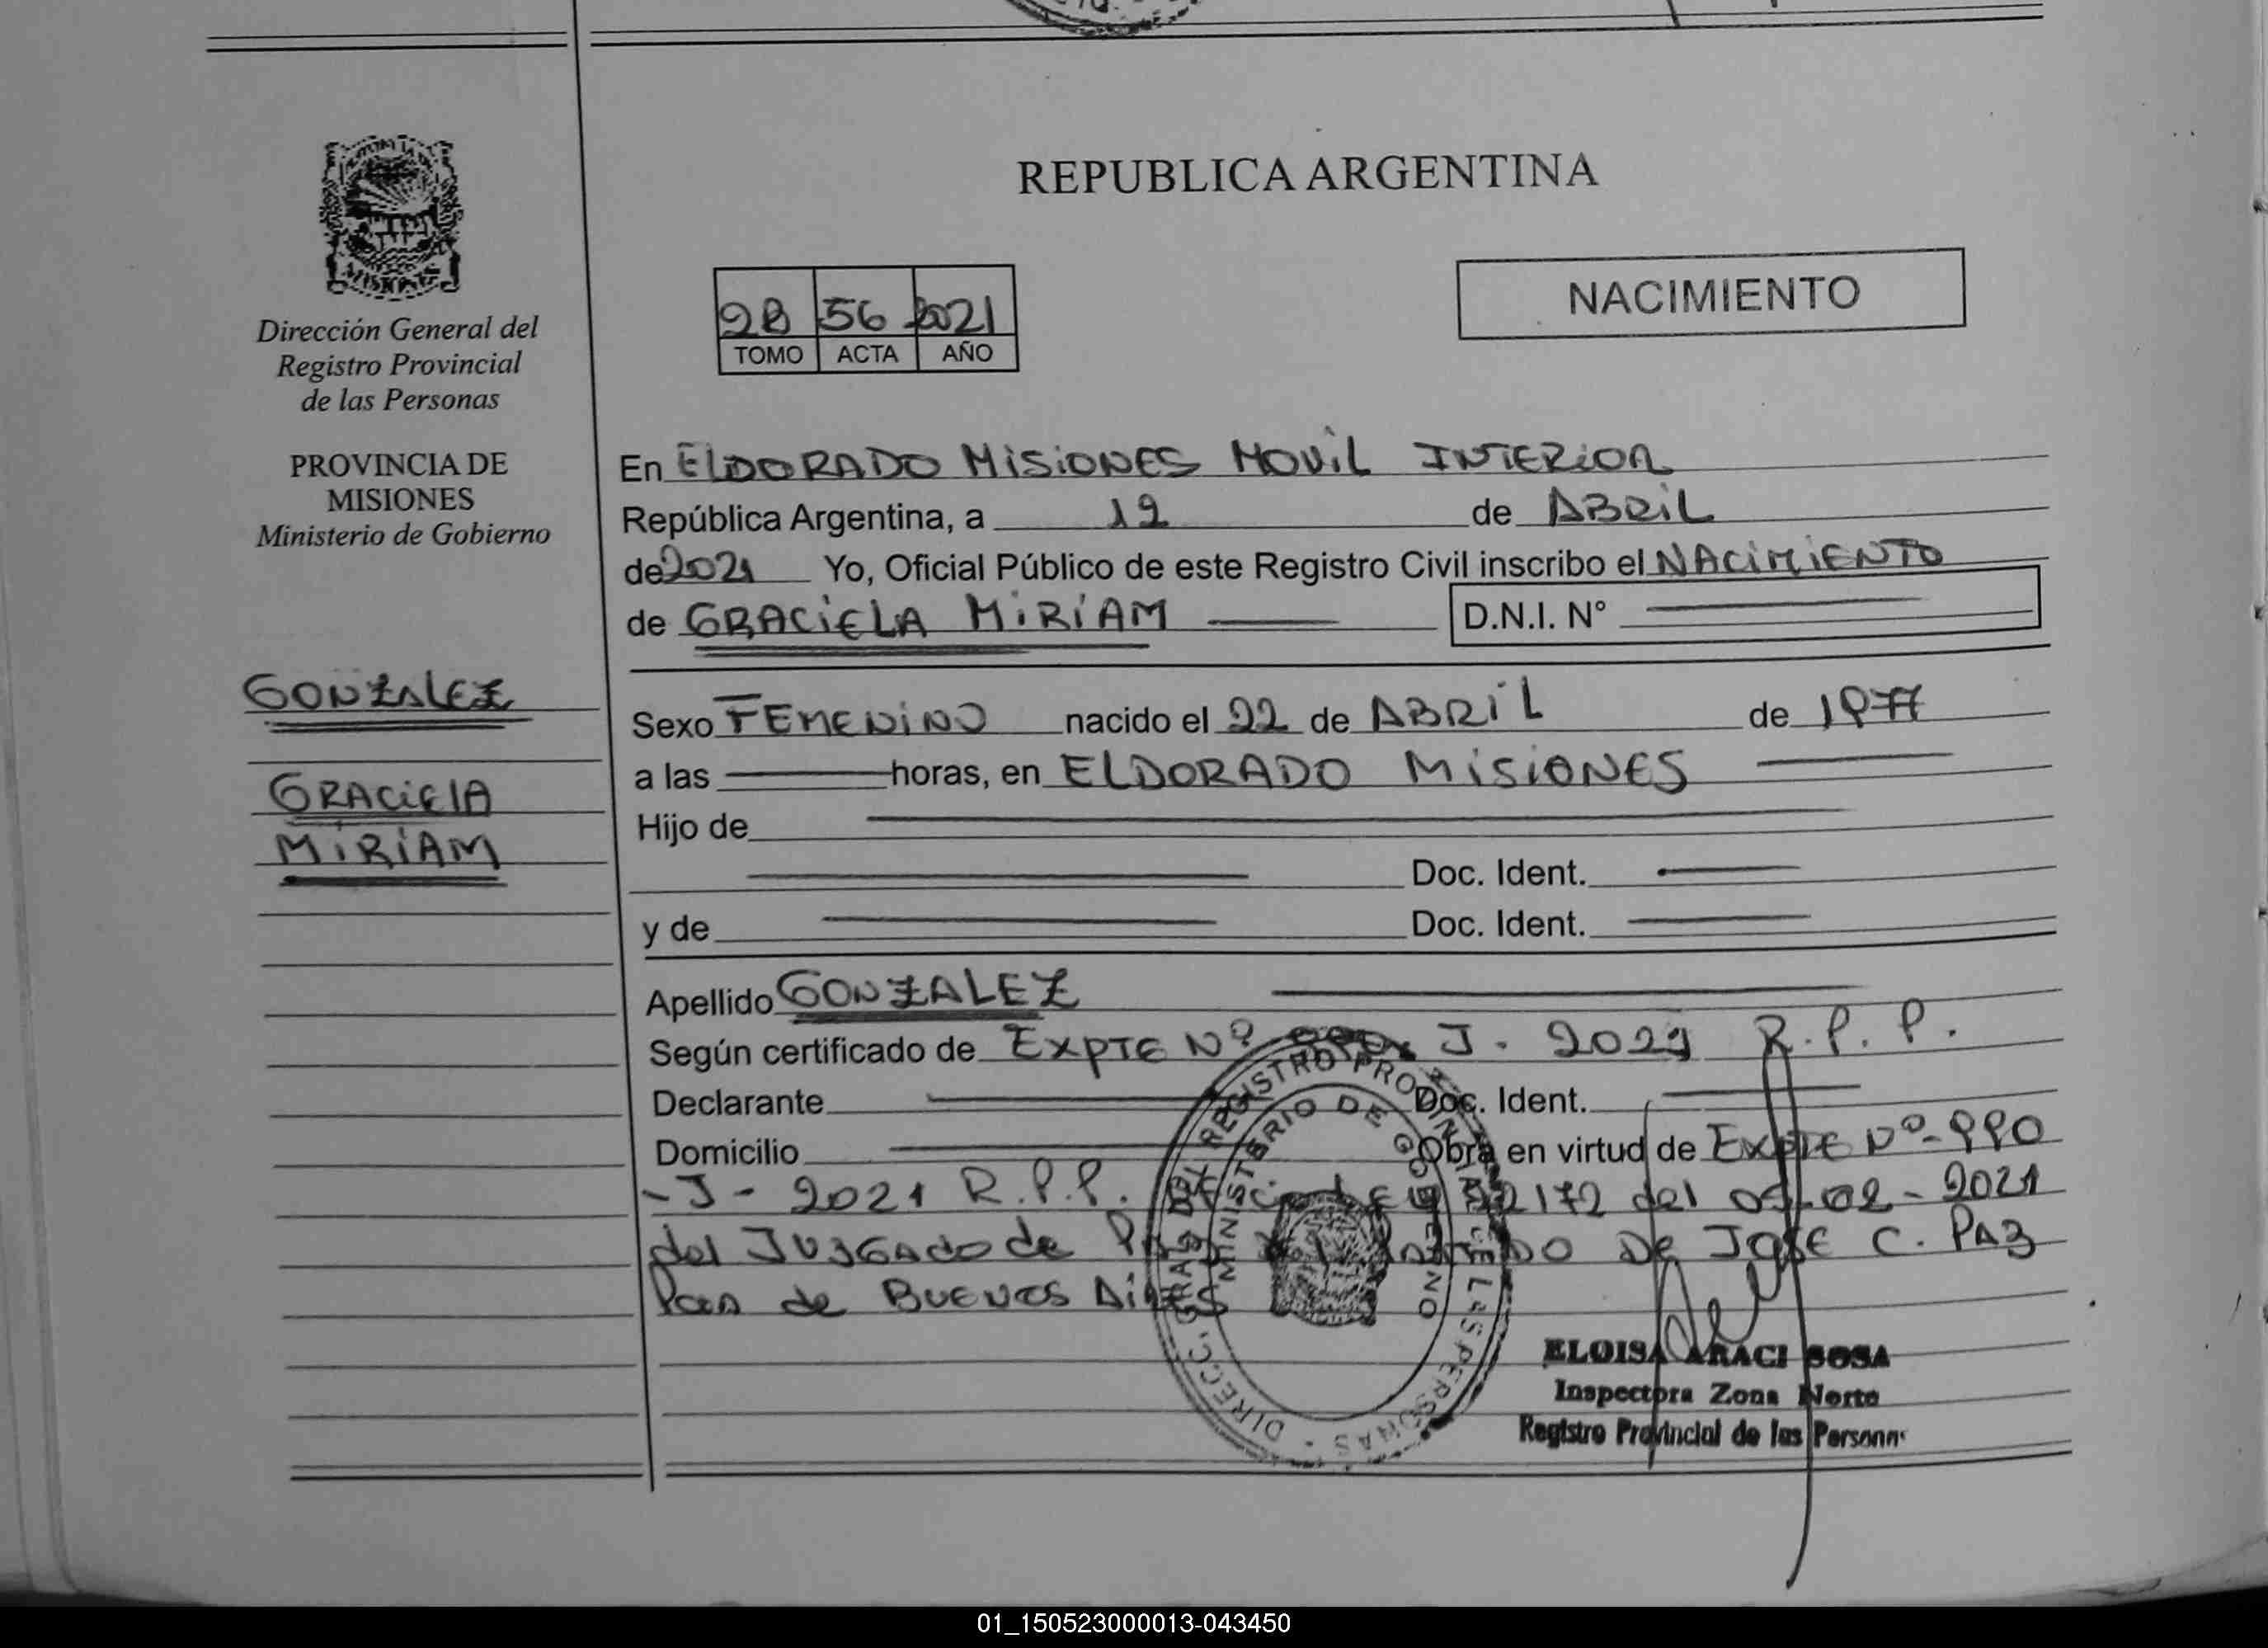 REPUBLICA ARGENTINA
NACIMIENTO
2B 56 2021
TOMO ACTA AÑO
Dirección General del
Registro Provincial
de las Personas
PROVINCIA DE
MISIONES
Ministerio de Gobierno
GONZALEZ
GRACIELA
MIRIAM
En ELDORADO MISIONES MOVIL INTERIOR
República Argentina, a 12 de ABRIL
de 2021 Yo, Oficial Público de este Registro Civil inscribo el NACIMIENTO
de GRACIELA MIRIAM D.N.I. Nº
Sexo FEMENINO nacido el 22 de ABRIL de 1977
a las horas, en ELDORADO MISIONES
Hijo de
Doc. Ident.
y de Doc. Ident.
Apellido GONZALEZ
Según certificado de EXPTE Nº J - 2021 R.P.P.
Declarante Doc. Ident.
Domicilio Obra en virtud de EXPTE Nº 990
- J - 2021 R.P.P. del 02 - 2021
del JUZGADO de DE JOSE C. PAZ
de BUENOS AIRES
DIRECC. GRAL. DEL REGISTRO PROVINCIAL DE LAS PERSONAS
MINISTERIO DE GOBIERNO
ELOISA ARACI SOSA
Inspectora Zona Norte
Registro Provincial de las Personas
01_150523000013-043450